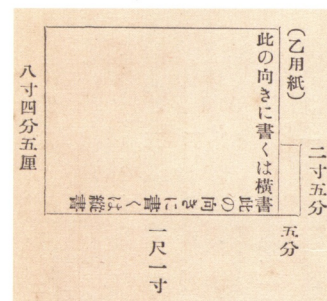 (乙用紙)
二寸五分
五分
此の向きに書くは橫書
此の向きに書くは縱書
一尺一寸
八寸四分五厘